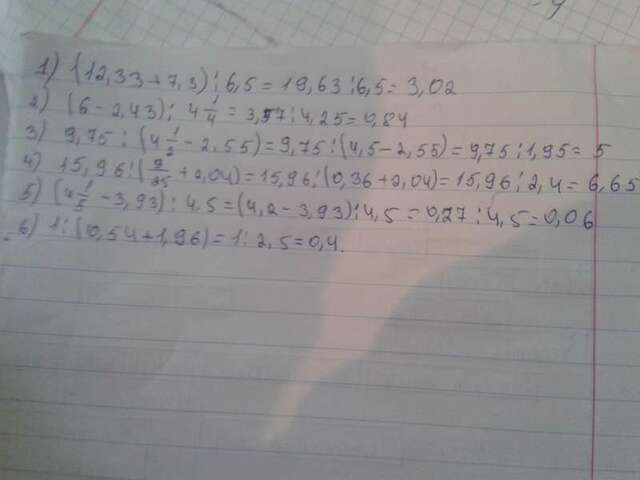 1) (12,33+7,3):6,5=19,63:6,5=3,02
2) (6-2,43): 4 1/4 = 3,57:4,25=0,84
3) 9,75 : (4 1/2 - 2,55)=9,75:(4,5-2,55)=9,75:1,95=5
4) 15,96:(9/25+2,04)=15,96:(0,36+2,04)=15,96:2,4=6,65
5) (4 1/5 - 3,93):4,5=(4,2-3,93):4,5=0,27:4,5=0,06
6) 1:(0,54+1,96)=1:2,5=0,4.